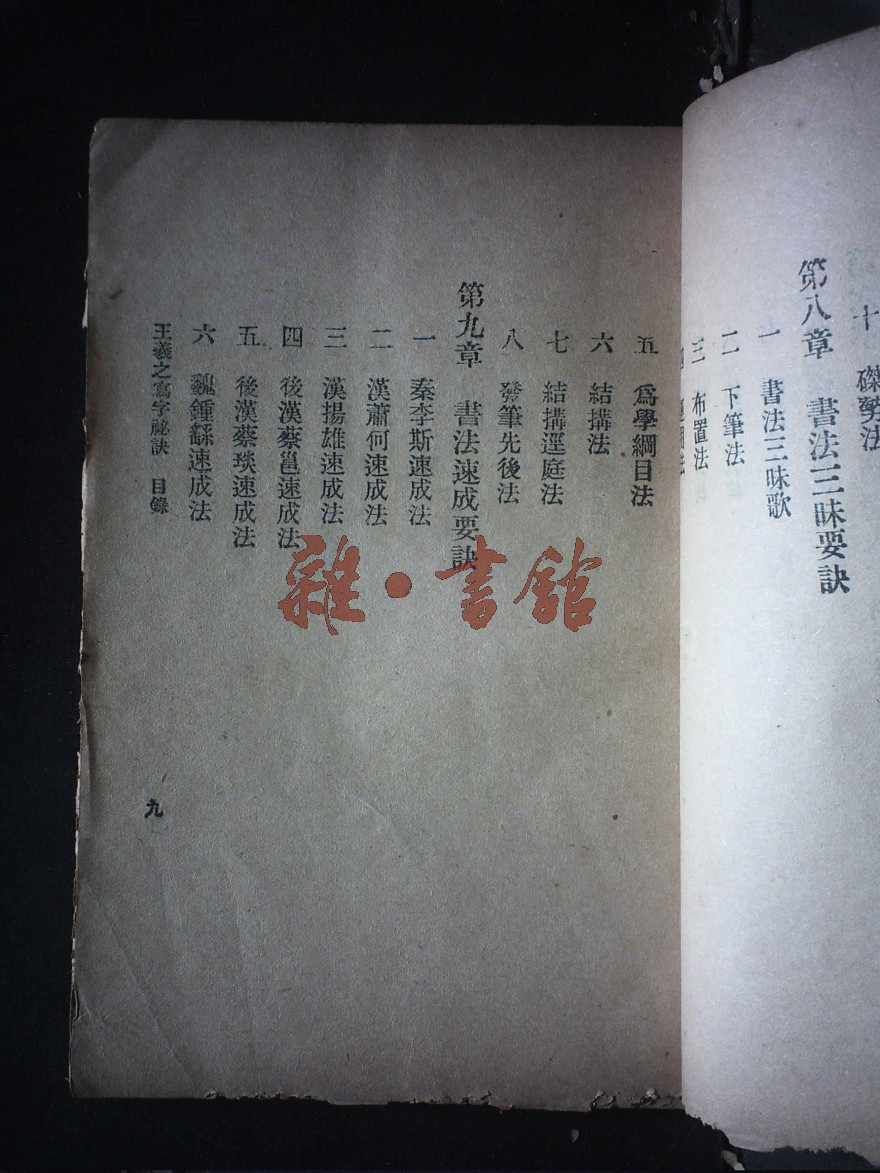 十 磔勢法
第八章 書法三昧要訣
一 書法三昧歌
二 下筆法
三 布置法
五 爲學綱目法
六 結搆法
七 結搆逕庭法
八 發筆先後法
第九章 書法速成要訣
一 秦李斯速成法
二 漢蕭何速成法
三 漢揚雄速成法
四 後漢蔡邕速成法
五 後漢蔡琰速成法
六 魏鍾繇速成法
王羲之寫字祕訣 目錄
九
雜·書館